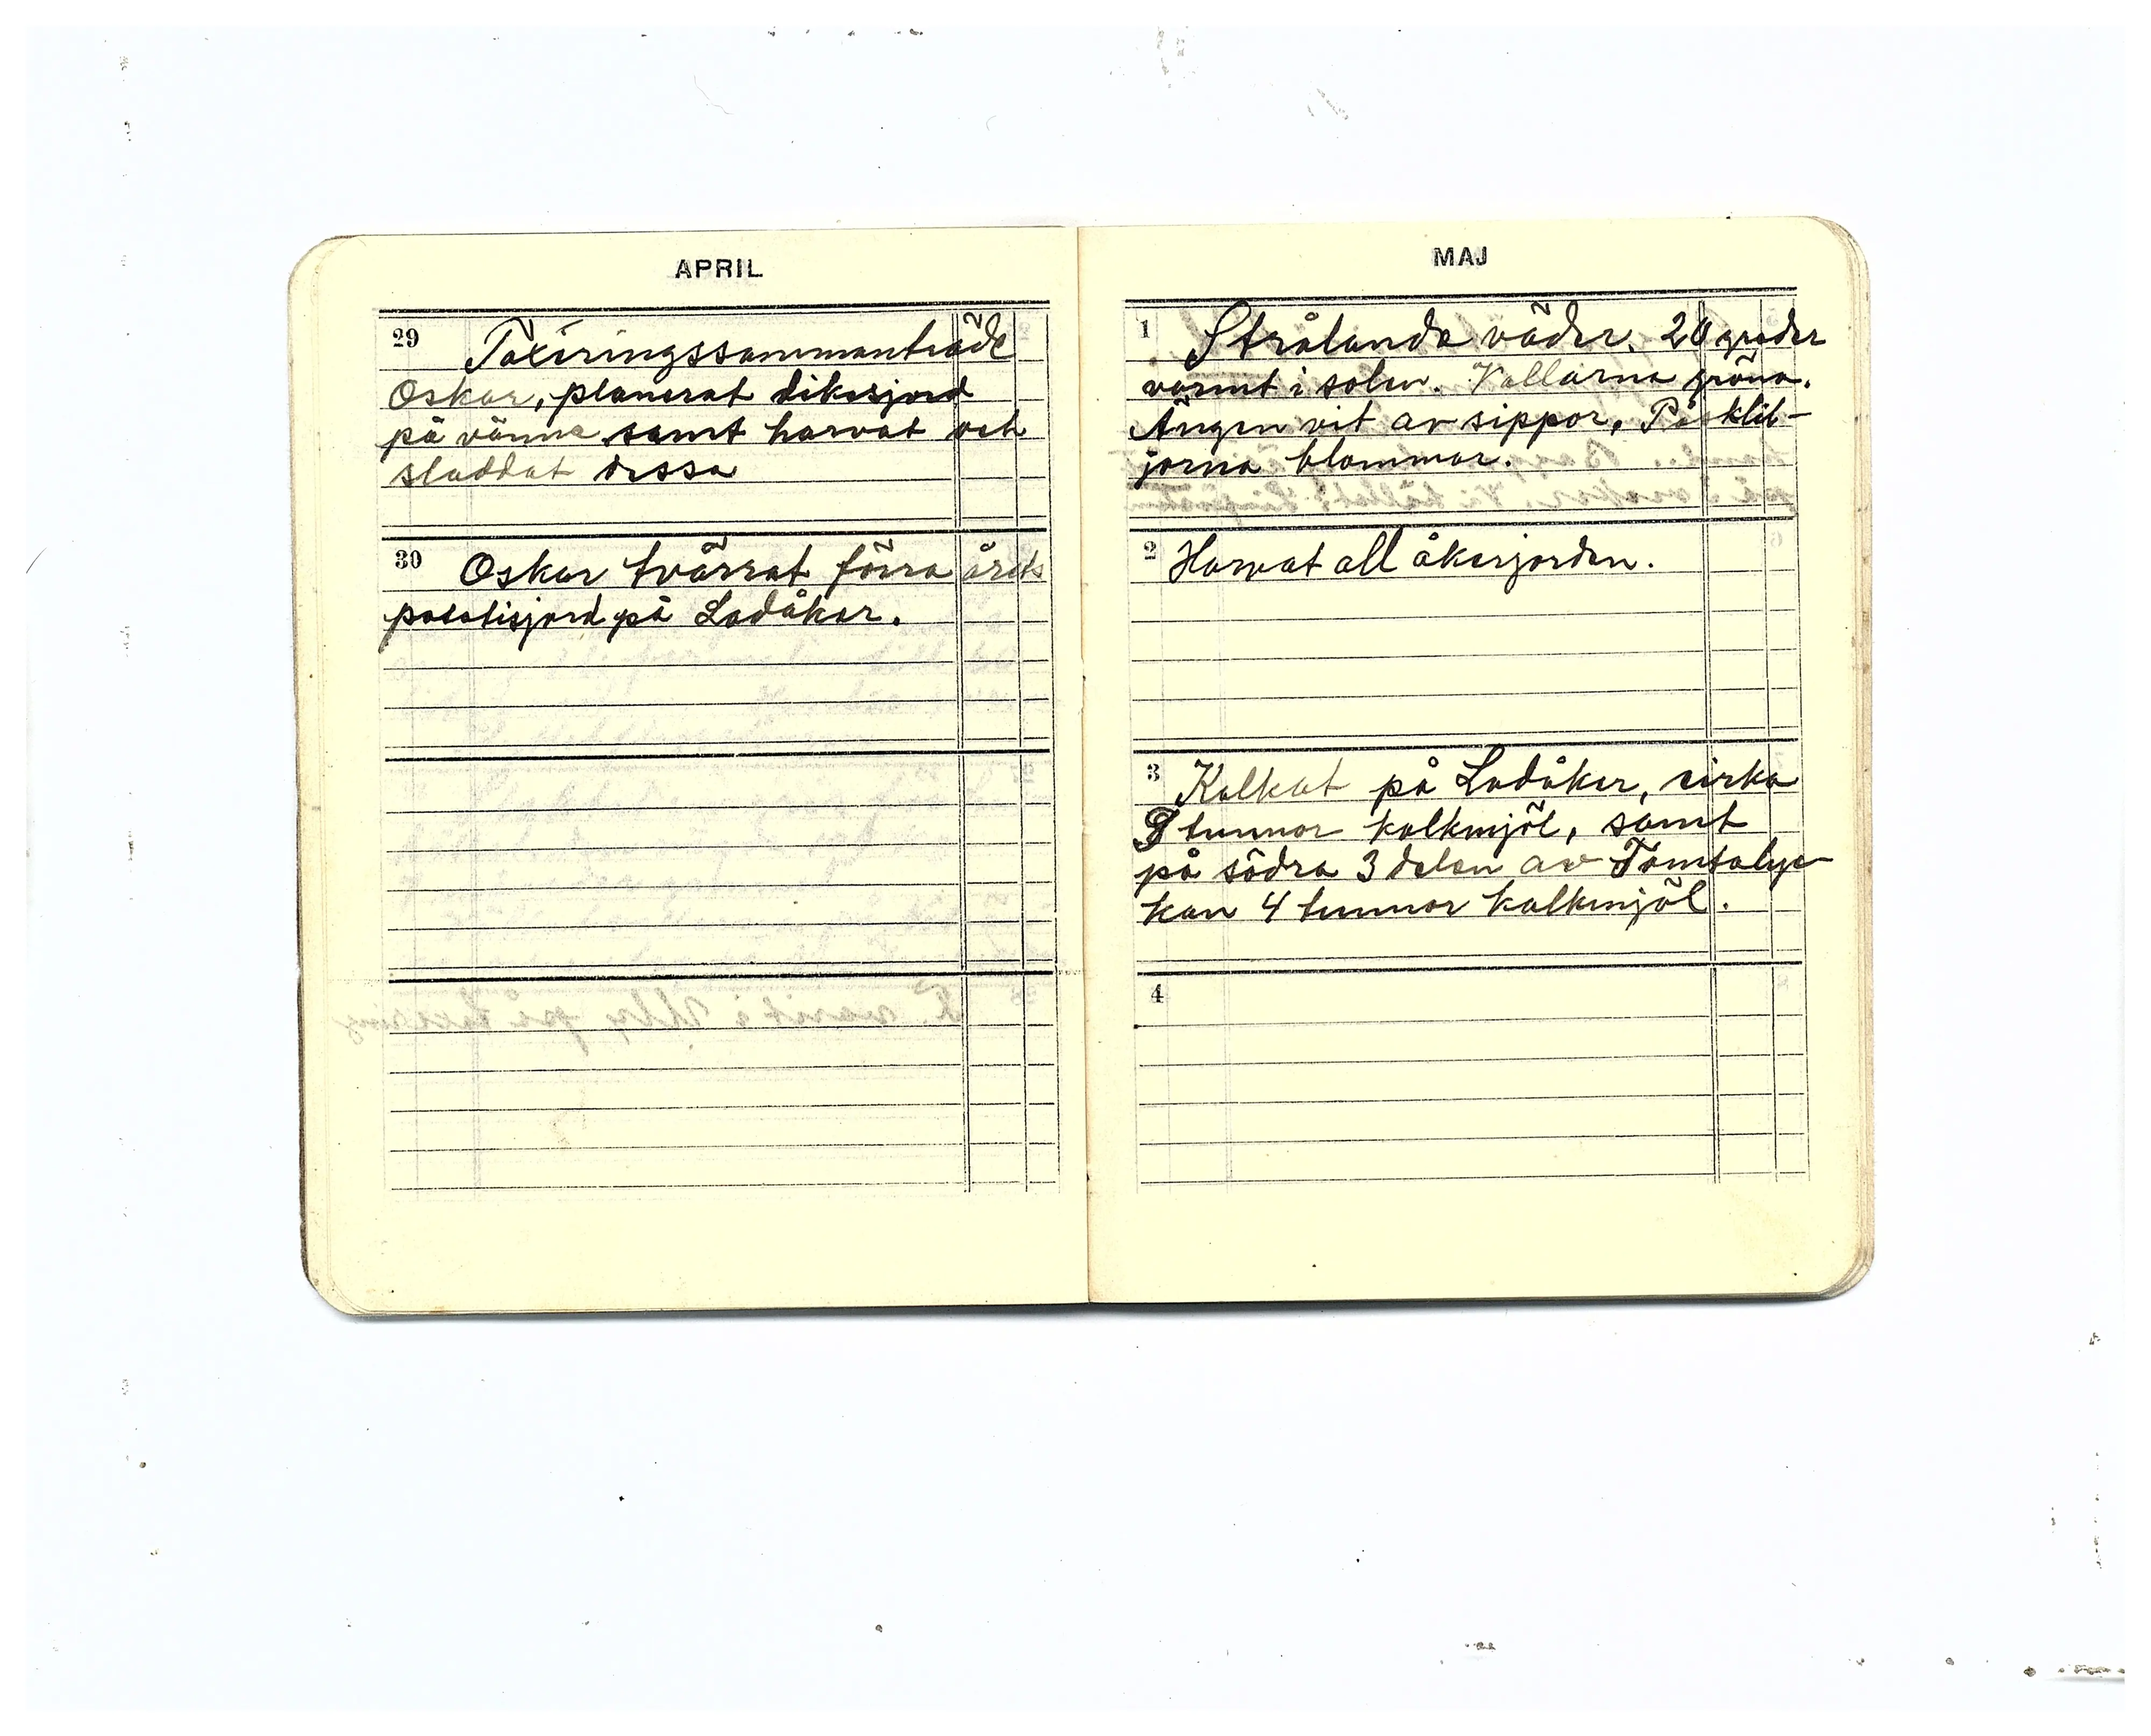 APRIL
29 Taxeringssammanträde
Oskar, planerat dikesjord
på vänne samt harvat och
sladdat dessa
30 Oskar tvärrat förra årets
potatisjord på Ladåker.
MAJ
1 Strålande väder. 20 grader
varmt i solen. Vallarna gröna.
Ängen vit av sippor. Påsklil-
jorna blommar.
2 Harvat all åkerjorden.
3 Kalkat på Ladåker, cirka
9 tunnor kalkmjöl, samt
på södra 3 delen av Tomtalyc
kan 4 tunnor kalkmjöl.
4